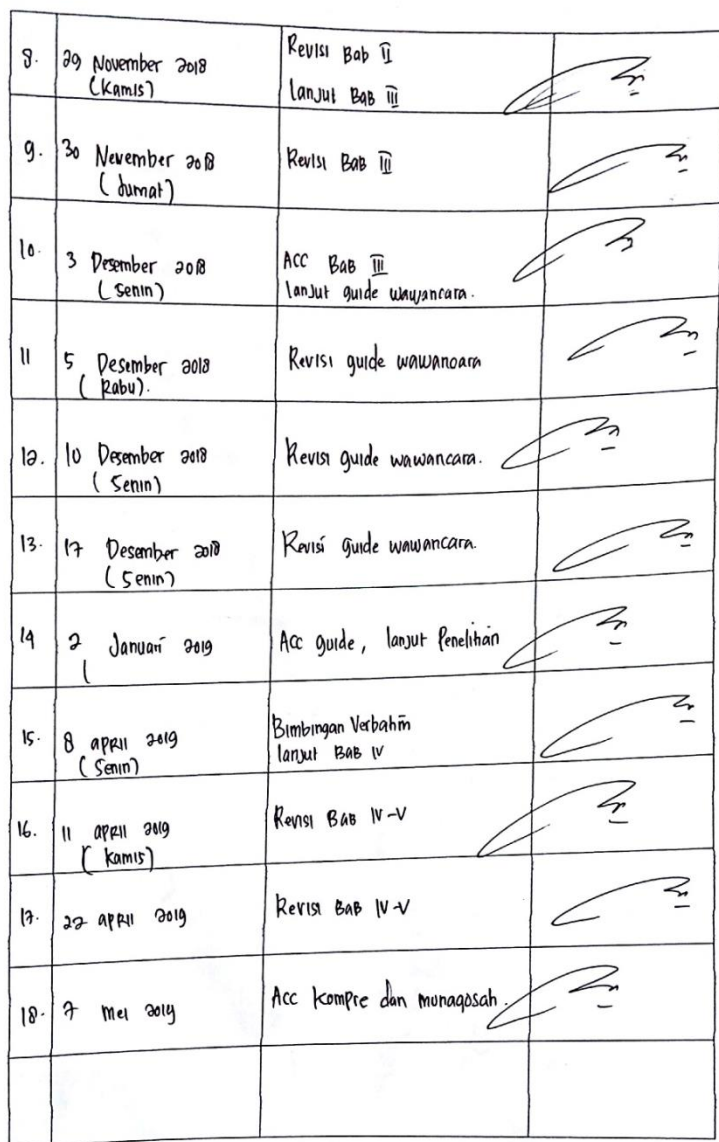 8. 29 November 2018 Revisi Bab II
(Kamis) lanjut BAB III
9. 30 November 2018 Revisi BAB III
(Jumat)
10. 3 Desember 2018 ACC BAB III
(Senin) lanjut guide wawancara.
11 5 Desember 2018 Revisi guide wawancara
(Rabu).
12. 10 Desember 2018 Revisi guide wawancara.
(Senin)
13. 17 Desember 2018 Revisi guide wawancara.
(Senin)
14 2 Januari 2019 Acc guide, lanjut Penelitian
(
15. 8 april 2019 Bimbingan Verbatim
(Senin) lanjut BAB IV
16. 11 april 2019 Revisi BAB IV-V
(Kamis)
17. 22 april 2019 Revisi BAB IV-V
18. 7 mei 2019 Acc kompre dan munaqosah.